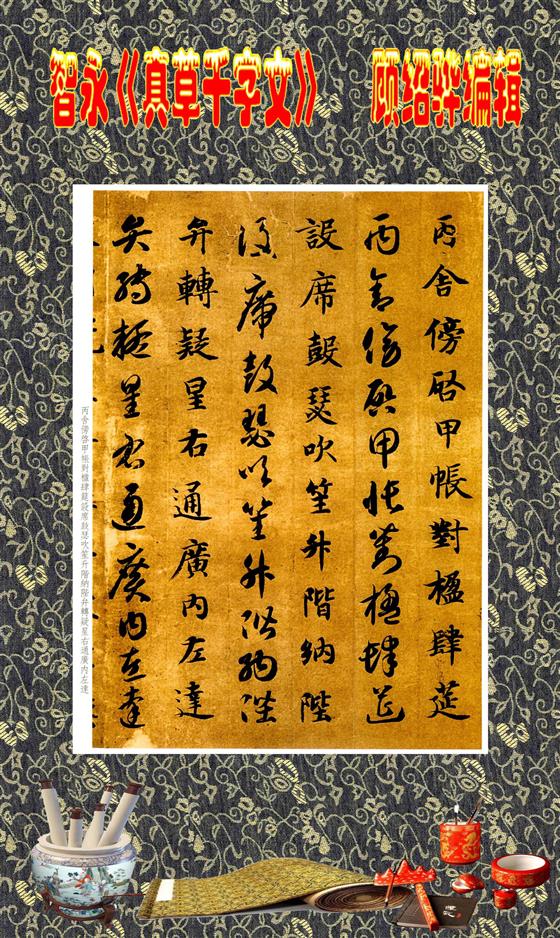 智永《真草千字文》 顾绍骅编辑
丙舍傍啓甲帳對楹肆筵
丙舍傍啓甲帳對楹肆筵
設席鼓瑟吹笙升階納陛
設席鼓瑟吹笙升階納陛
弁轉疑星右通廣內左達
弁轉疑星右通廣內左達
丙舍傍啓甲帳對楹肆筵設席鼓瑟吹笙升階納陛弁轉疑星右通廣內左達